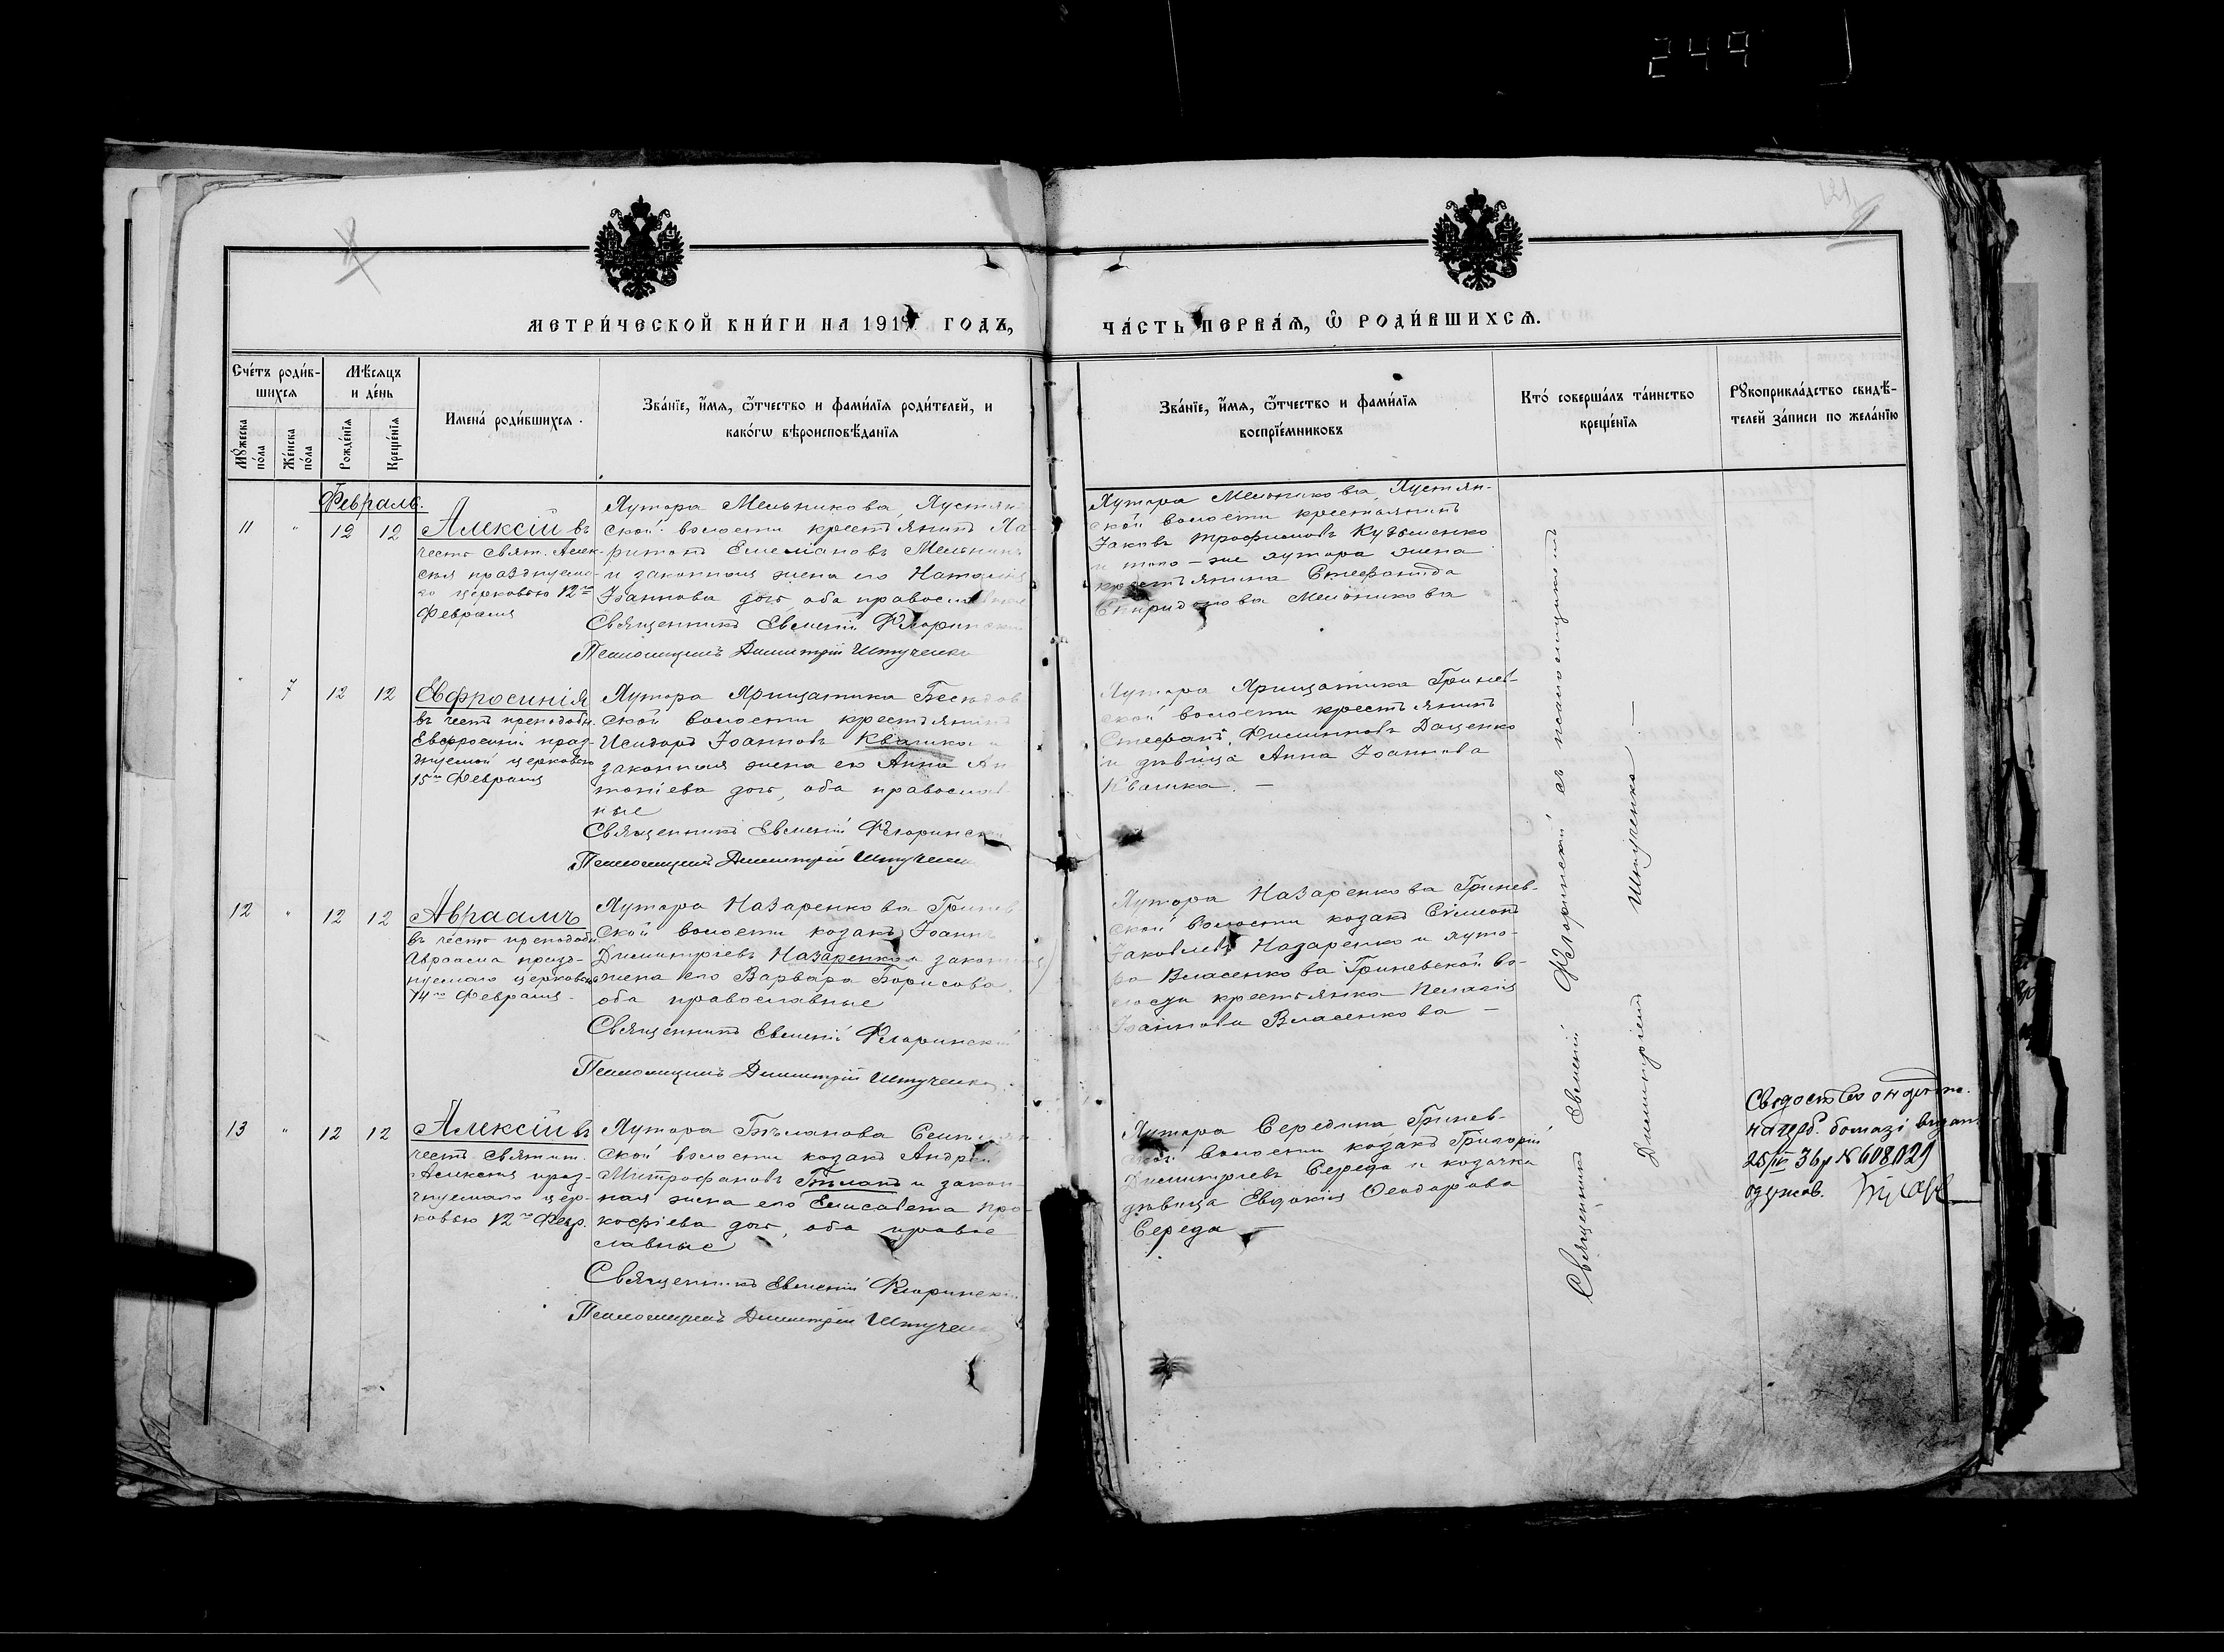 249
121
МЕТРИ́ЧЕСКОЙ КНИ́ГИ НА 1917 ГОДЪ,
ЧА́СТЬ ПЕРВА́Ѧ, Ѡ҆ РОДИ́ВШИХСѦ.
Сче́тъ роди́в-
шихсѧ
Мꙋ́жеска
по́ла
Же́нска
по́ла
Мѣ́сѧцъ
и де́нь
Рожде́нїѧ
Креще́нїѧ
Имена̀ роди́вшихсѧ.
Зва́нїе, и҆́мѧ, ѻ҆́тчество и фами́лїѧ роди́телей, и
како́гѡ вѣроисповѣ́данїѧ
Зва́нїе, и҆́мѧ, ѻ҆́тчество и фами́лїѧ
воспрїе́мниковъ
Кто́ соверша́лъ та́инство
креще́нїѧ
Рꙋкоприкла́дство свидѣ́-
телей за́писи по жела́нїю
Февраль.
11 " 12 12
Алексій въ
честь свят. Алек-
сия празднуема-
го церковью 12го
Февраля
Хутора Мельникова, Хустян-
ской волости крестьянинъ Ха
ритонъ Емеліановъ Мельник
и законная жена его Наталія
Іоаннова дочь, оба православные
Священникъ Евменій Флоринский
Псаломщикъ Димитрій Штученко
Хутора Мельникова, Хустян-
ской волости крестьянинъ
Іаковъ Трофимовъ Кузьменко
и того-же хутора жена
крестьянина Стефанида
Спиридонова Мельникова
" 7 12 12
Евфросинія
въ честь преподобн.
Евфросиніи праз-
днуемой церковью
15го Февраля
Хутора Хрищатика Бесѣдов
ской волости крестьянинъ
Исидоръ Іоанновъ Квашка и
законная жена его Анна Ан
тоніева дочь, оба православ-
ные
Священникъ Евменій Флоринск
Псаломщикъ Димитрій Штученк
Хутора Хрищатика Гринев-
ской волости крестьянинъ
Стефанъ Филипповъ Даценко
и дѣвица Анна Іоаннова
Квашка. —
12 " 12 12
Авраамъ
въ честь преподобн.
Авраама празд-
нуемаго церковью
14го Февраля
Хутора Назаренкова Гринев
ской волости козакъ Іоаннъ
Димитріевъ Назаренко и законная
жена его Варвара Борисова,
оба православные
Священникъ Евменій Флоринскій
Псаломщикъ Димитрій Штученко
Хутора Назаренкова Гринев-
ской волости козакъ Симеонъ
Іаковлевъ Назаренко и хуто-
ра Власенкова Гриневской во-
лости крестьянка Пелагія
Іоаннова Власенкова —
13 " 12 12
Алексій въ
честь Святит.
Алексия праз-
днуемаго цер-
ковью 12го Февр.
Хутора Бѣланова
ской волости козакъ Андрей
Митрофановъ Бѣланъ и закон-
ная жена его Елисавета Про-
кофіева дочь, оба право-
славные
Священникъ Евменій Флоринскі
Псаломщикъ Димитрій Штученк
Хутора Середина, Гринев-
ской волости козакъ Григорій
Димитріевъ Середа и козачка
дѣвица Евдокія Ѳеодорова
Середа —
Священникъ Евменій Флоринскій съ псаломщикомъ
Димитріемъ Штученко —
на герб. бомазі видан
25/III 36р N 608029
одержав.